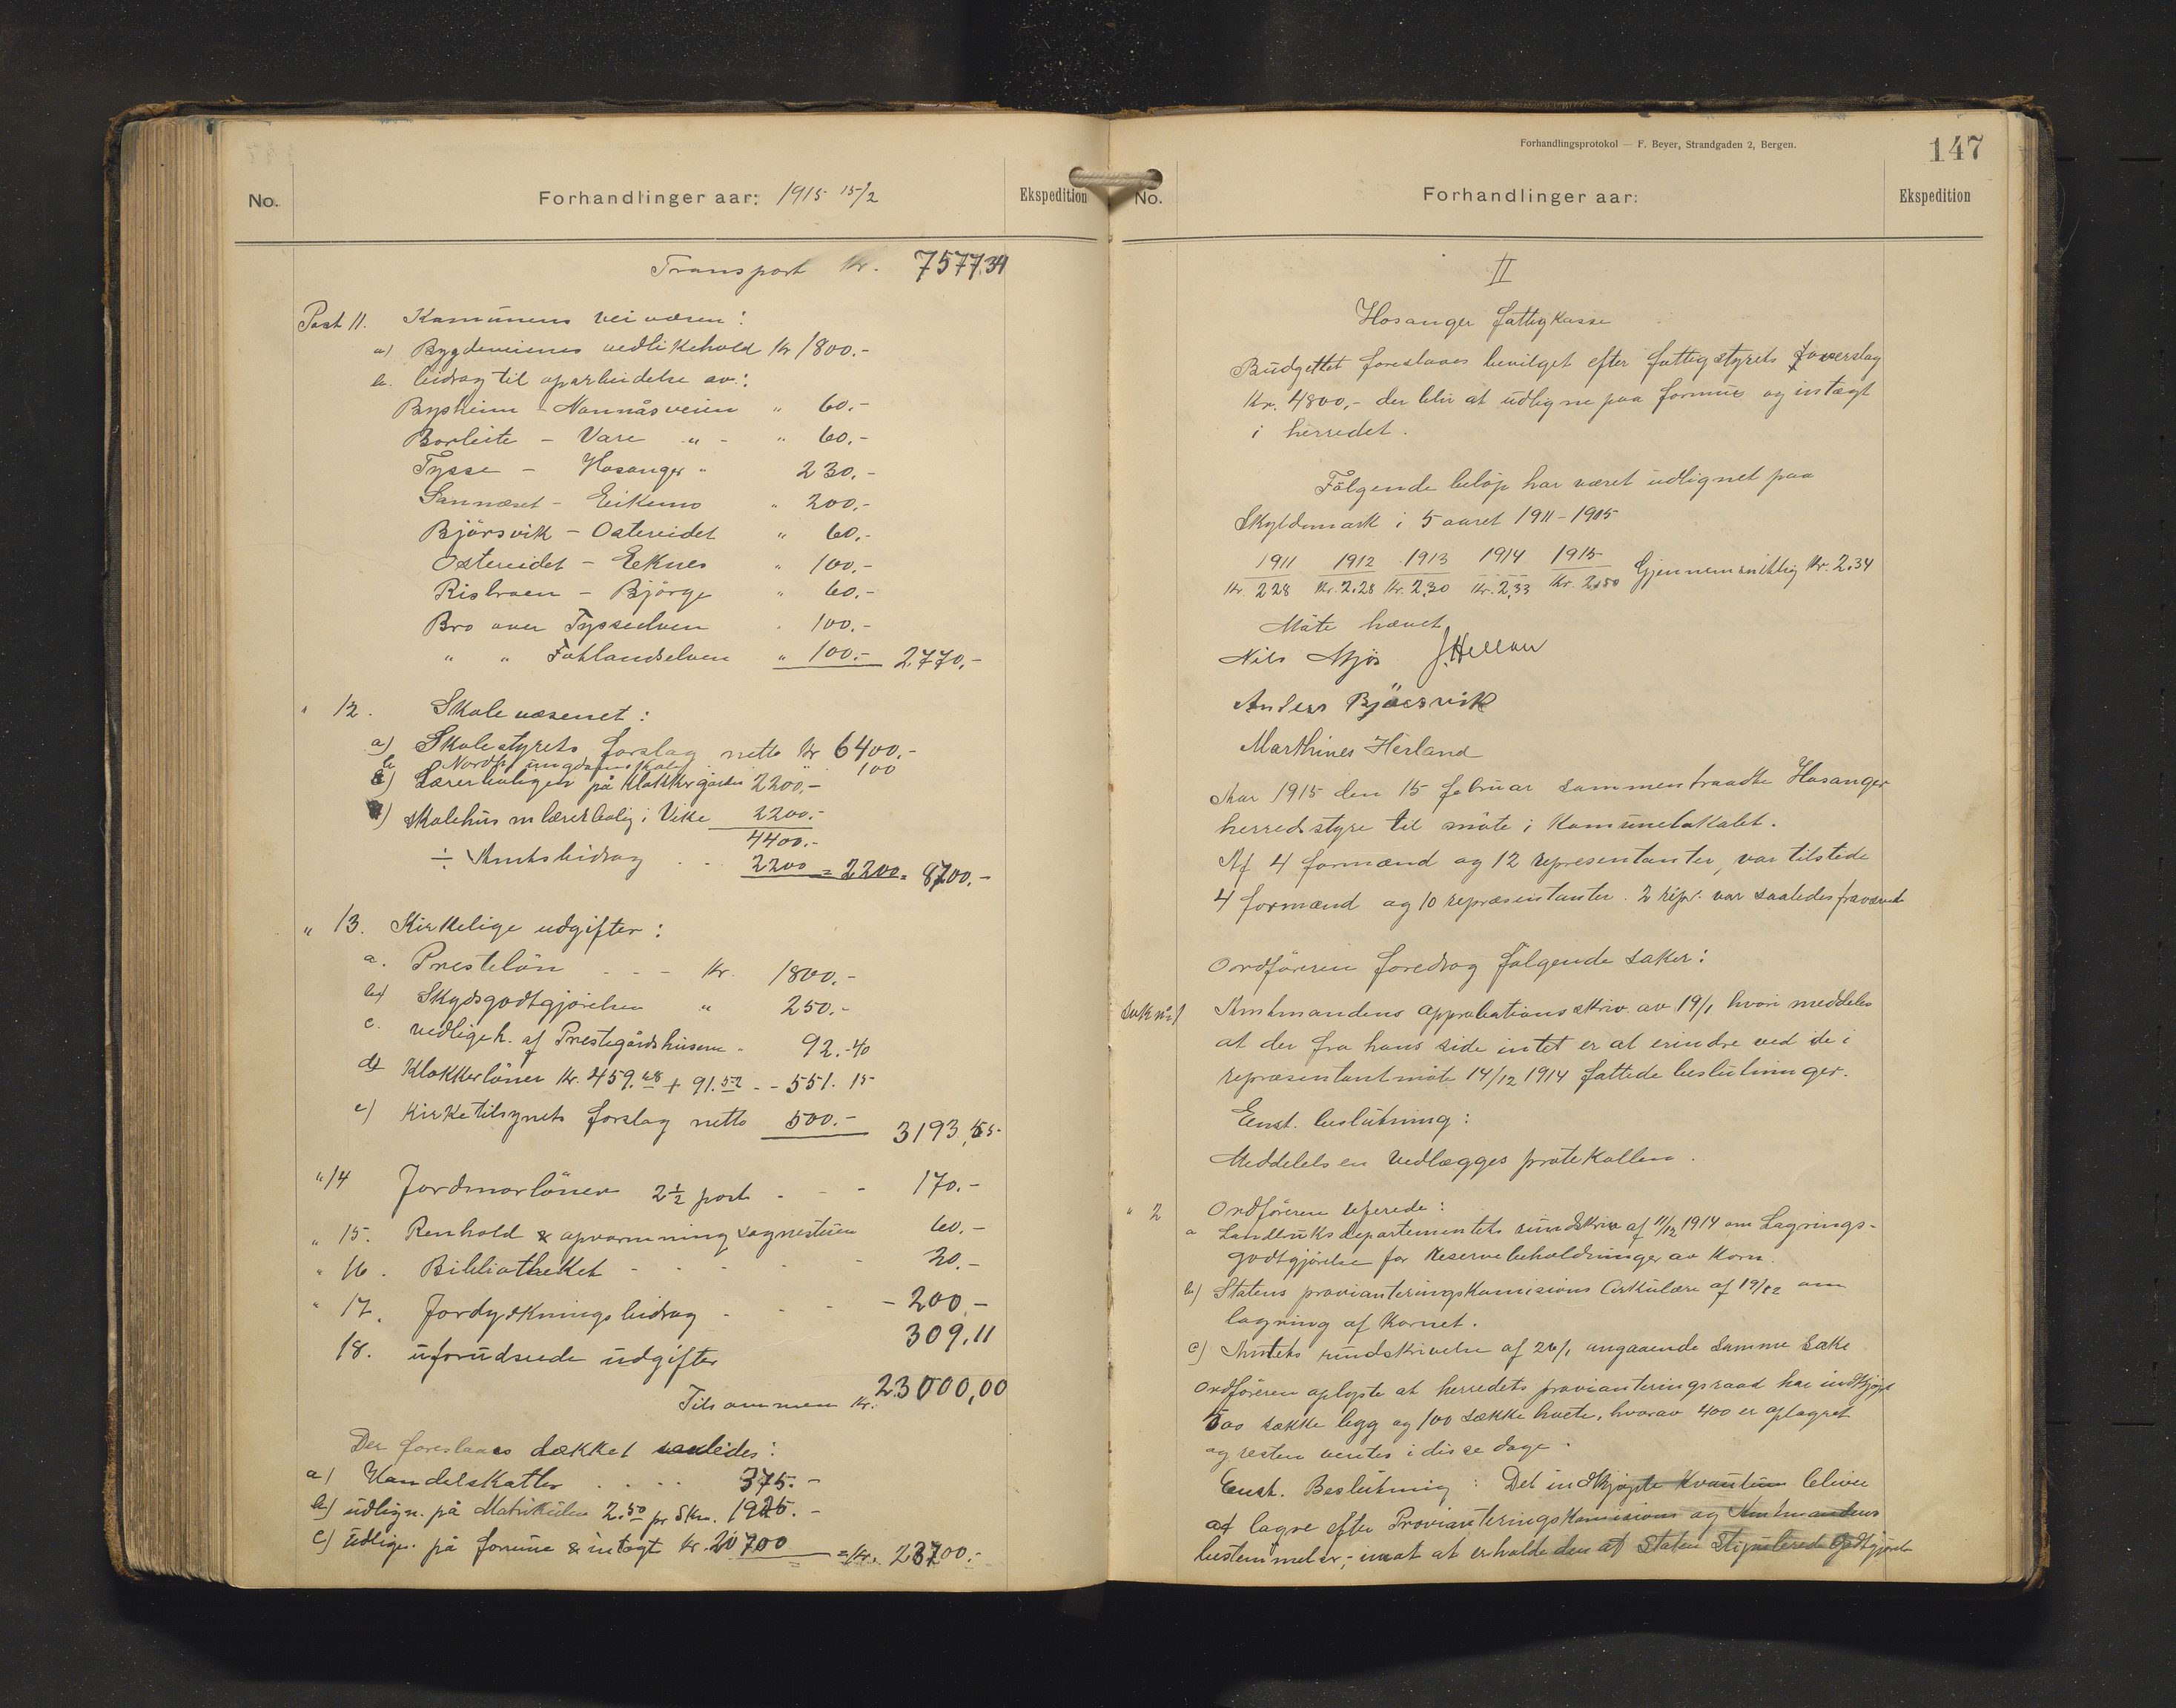 No.
Forhandlinger aar: 1915 15/2
Ekspedition
Transport Kr. 7577,34
Post 11. Kommunens veivæsen:
a) Bygdeveienes vedlikehold Kr 1800.-
b. bidrag til oparbeidelse av:
Bysheim - Nonnåsveien " 60.-
Borleite - Vare " - " 60.-
Tysse - Hosanger " 230.-
Sannæset - Eikemo " 200.-
Bjørsvik - Ostereidet " 60.-
Ostereidet - Eeknes " 100.-
Risbraen - Bjørge " 60.-
Bro over Tysseelven . 100.-
" " Fotlandselven " 100.- 2770.-
" 12. Skolevæsenet:
a) Skolestyrets forslag netto kr 6400.-
b Nordh. ungdomsskole 100
c) Lærerboligen på Klokkergården 2200.-
d) Skolehus m lærerbolig i Vike 2200.-
4400.-
÷ Amtsbidrag . . . 2200 = 2200 = 8700.-
" 13. Kirkelige udgifter:
a. Presteløn - - - Kr. 1800.-
b) Skydsgodtgjørelsen " 250.-
c. vedligeh. af Prestegårdshusene - 92.-40
d) Klokkerlønnen Kr. 459.68 + 91.52 - - 551. 15
e) Kirketilsynets forslag netto 500.- 3193,55
" 14 Jordmorlønnen 2 1/2 post - - - 170.-
" 15. Renhold & opvarmning sognestuen 60.-
" 16. Bibliotheket - - - - - 20.-
" 17. Jorddyrkningsbidrag - - - - 200,-
18. uforudseede udgifter 309.11
Tilsammen Kr. 23000,00
Der foreslaaes dækket saaledes:
a) Handelskatter . . . . 375.-
b) udlign. på Matrikulen 2.50 pr Skm. 1925.-
c) Udlign. på formue & intægt kr. 20700 = Kr. 23700.-
Forhandlingsprotokol — F. Beyer, Strandgaden 2, Bergen.
147
No.
Forhandlinger aar:
Ekspedition
II
Hosanger fattigkasse
Budgettet foreslaaes bevilget efter fattigstyrets foreslag
Kr. 4800,- der blir at udligne paa formue og intægt
i herredet.
Følgende beløp har været udlignet paa
Skyldmark i 5 aaret 1911-1915
1911 1912 1913 1914 1915
Kr. 2 28 Kr. 2.28 Kr. 2,30 Kr. 2,33 Kr. 2,50 Gjennemsnitlig Kr. 2.34
Møte hævet
Nils Mjøs J. Helland
Anders Bjørsvik
Marthines Herland
Aar 1915 den 15 februar sammentraadte Hosanger
herredsstyre til møte i Kommunelokalet.
Af 4 formænd og 12 representanter, var tilstede
4 formænd og 10 repræsentanter. 2 repr. var saaledes fraværende
Ordføreren foredrog følgende saker:
Sak nr 1 Amtmandens approbationsskriv. av 19/1 hvori meddeles
at der fra hans side intet er at erindre ved de i
repræsentantmøte 14/12 1914 fattede beslutninger.
Enst. beslutning:
Meddelelsen vedlægges protokollen.
" 2 Ordføreren referede:
a Landbruksdepartementets rundskriv af 11/12 1914 om Lagrings-
godtgjørelse for reservebeholdninger av korn.
b) Statens provianteringskomisions Cirkulære af 19/12 om
lagring af kornet.
c) Amtets rundskrivelse af 26/1 angaaende samme sake
Ordføreren oplyste at herredets provianteringsraad har indkjøpt
500 sække bygg og 100 sække hvete, hvorav 400 er oplagret
og resten ventes i disse dage.
Enst. Beslutning: Det indkjøpte Kvantum bliver
at lagre efter Provianteringskomisionens og Amtmandens
bestemmelser,- imot at erholde den af Staten Stipulerede Godtgjørelse